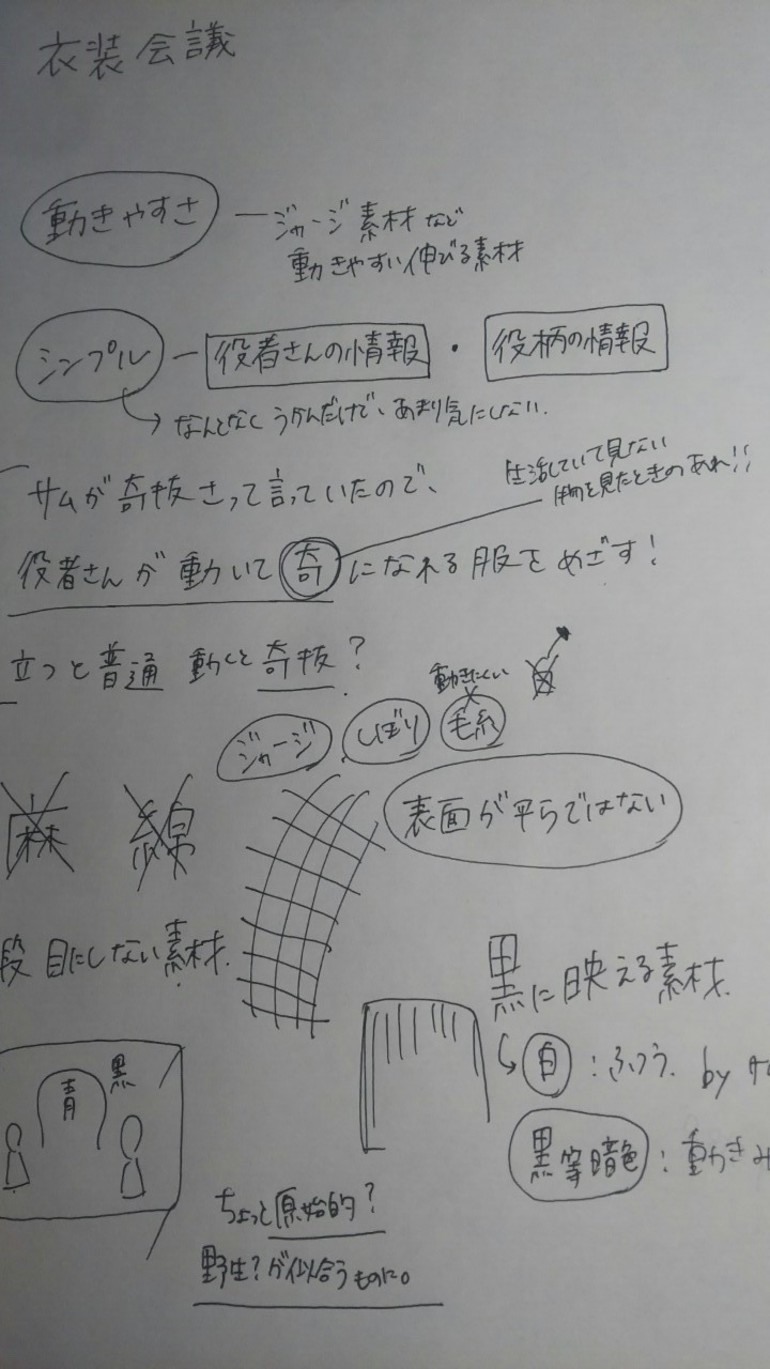 衣装会議
動きやすさ ― ジャージ素材など
動きやすい伸びる素材
シンプル ― 役者さんの情報 ・ 役柄の情報
→ なんとなくうかんだけで、あまり気にしない.
生活していて見ない
物を見たときのあれ!!
サムが奇抜さって言っていたので、
役者さんが動いて奇になれる服をめざす!
立つと普通 動くと奇抜?
動きにくい
ジャージ しぼり 毛糸
麻 綿
表面が平らではない
段 目にしない素材.
黒に映える素材.
白 : ふつう. by サ
黒等暗色 : 動き
青 黒
ちょっと原始的?
野生?が似合うものに。